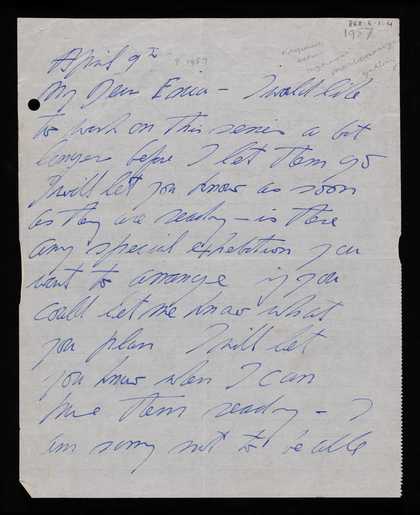 868-6-1-4
1957
? 1957
April 9th
My Dear Erica - I would like
to work on this series a bit
longer before I let them go
I will let you know as soon
as they are ready - is there
any special exhibition you
want to arrange if you
could let me know what
you plan I will let
you know when I can
have them ready - I
am sorry not to be able